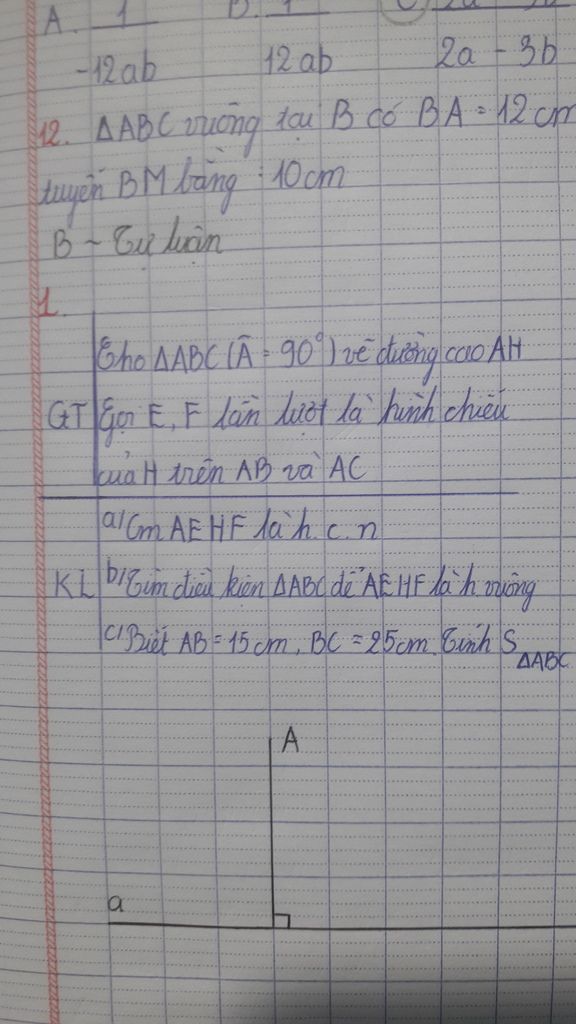 A. 1 B. 1
-12ab 12ab 2a - 3b
12. ΔABC vuông tại B có BA = 12cm
tuyến BM bằng : 10cm
B - Tự luận
1.
Cho ΔABC (Â = 90°) vẽ đường cao AH
GT Gọi E, F lần lượt là hình chiếu
của H trên AB và AC
a) Cm AEHF là h.c.n
KL b) Tìm điều kiện ΔABC để AEHF là h vuông
c) Biết AB = 15cm, BC = 25cm. Tính S ΔABC
A
a